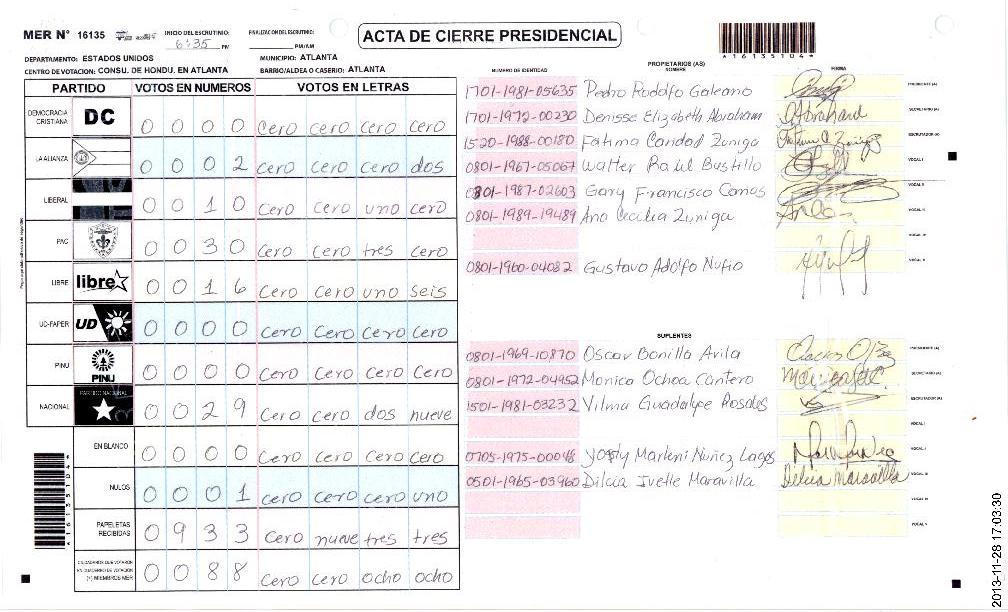 MER N° 16135
INICIO DEL ESCRUTINIO:
6:35 PM
FINALIZACION DEL ESCRUTINIO:
PM/AM
ACTA DE CIERRE PRESIDENCIAL
*16135104*
DEPARTAMENTO: ESTADOS UNIDOS
MUNICIPIO: ATLANTA
CENTRO DE VOTACION: CONSU. DE HONDU. EN ATLANTA
BARRIO/ALDEA O CASERIO: ATLANTA
PARTIDO VOTOS EN NUMEROS VOTOS EN LETRAS
DEMOCRACIA CRISTIANA DC 0 0 0 0 cero cero cero cero
LA ALIANZA 0 0 0 2 cero cero cero dos
LIBERAL 0 0 1 0 cero cero uno cero
PAC 0 0 3 0 cero cero tres cero
LIBRE libre 0 0 1 6 cero cero uno seis
UD-FAPER UD 0 0 0 0 cero cero cero cero
PINU PINU 0 0 0 0 cero cero cero cero
NACIONAL PARTIDO NACIONAL 0 0 2 9 cero cero dos nueve
EN BLANCO 0 0 0 0 cero cero cero cero
NULOS 0 0 0 1 cero cero cero uno
PAPELETAS RECIBIDAS 0 9 3 3 cero nueve tres tres
CIUDADANOS QUE VOTARON EN CUADERNO DE VOTACION (+) MIEMBROS MER 0 0 8 8 cero cero ocho ocho
*16135104*
NUMERO DE IDENTIDAD PROPIETARIOS (AS) NOMBRE FIRMA
1701-1981-05635 Pedro Rodolfo Galeano PRESIDENTE (A)
1701-1972-00230 Denisse Elizabeth Abraham SECRETARIO (A)
1520-1988-00180 Fatima Caridad Zuniga ESCRUTADOR (A)
0801-1967-05067 Walter Raul Bustillo VOCAL I
0801-1987-02603 Gary Francisco Comas VOCAL II
0801-1989-19489 Ana Cecilia Zuniga VOCAL III
VOCAL IV
0801-1960-04082 Gustavo Adolfo Nufio VOCAL V
SUPLENTES
0801-1969-10870 Oscar Bonilla Avila PRESIDENTE (A)
0801-1972-04952 Monica Ochoa Cantero SECRETARIO (A)
1501-1981-03232 Vilma Guadalupe Rosales ESCRUTADOR (A)
VOCAL I
0705-1975-00048 Yosly Marleni Nuñez Lagos VOCAL II
0501-1965-03960 Dilcia Ivette Maravilla Dilcia Maravilla VOCAL III
VOCAL IV
VOCAL V
2013-11-28 17:03:30